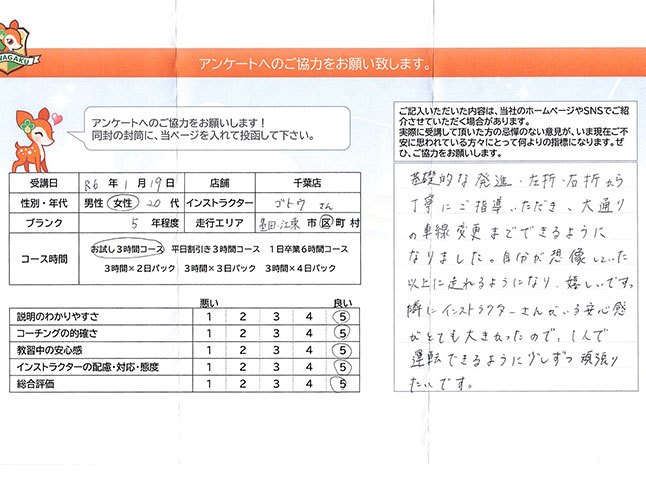 NAGAKU
アンケートへのご協力をお願い致します。
アンケートへのご協力をお願いします！
同封の封筒に、当ページを入れて投函して下さい。
受講日 R6 年 1 月 19 日 店舗 千葉店
性別・年代 男性 女性 20 代 インストラクター ゴトウ さん
ブランク 5 年程度 走行エリア 墨田・江東 市 区 町 村
コース時間 お試し3時間コース 平日割引き3時間コース 1日卒業6時間コース
3時間×2日パック 3時間×3日パック 3時間×4日パック
悪い 良い
説明のわかりやすさ 1 2 3 4 5
コーチングの的確さ 1 2 3 4 5
教習中の安心感 1 2 3 4 5
インストラクターの配慮・対応・態度 1 2 3 4 5
総合評価 1 2 3 4 5
ご記入いただいた内容は、当社のホームページやSNSでご紹
介させていただく場合があります。
実際に受講して頂いた方の忌憚のない意見が、いま現在ご不
安に思われている方々にとって何よりの指標になります。ぜ
ひ、ご協力をお願いします。
基礎的な発進・左折・右折から
丁寧にご指導いただき、大通り
の車線変更までできるように
なりました。自分が想像していた
以上に走れるようになり、嬉しいです。
隣にインストラクターさんがいる安心感
がとても大きかったので、1人で
運転できるように少しずつ頑張り
たいです。